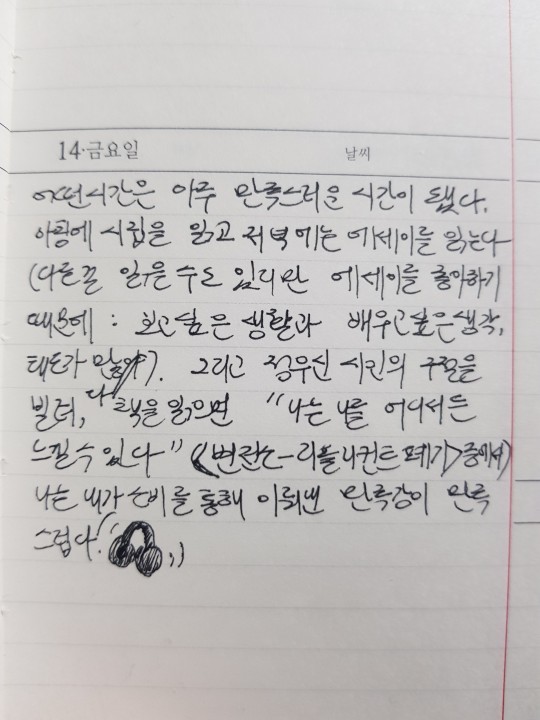 14·금요일 날씨
어떤시간은 아주 만족스러운 시간이 됐다.
아침에 시집을 읽고 저녁에는 에세이를 읽는다
(다른걸 읽을 수도 있지만 에세이를 좋아하기
때문에 : 보고싶은 생활과 배우고싶은 생각,
태도가 많다). 그리고 정우신 시인의 구절을
빌려, 책을 읽으면 "나는 나를 어디서든
느낄 수 있다" (<변환ㄴ-리플리컨트 폐기>중에서)
나는 내가 소비를 통해 이뤄낸 만족감이 만족
스럽다!